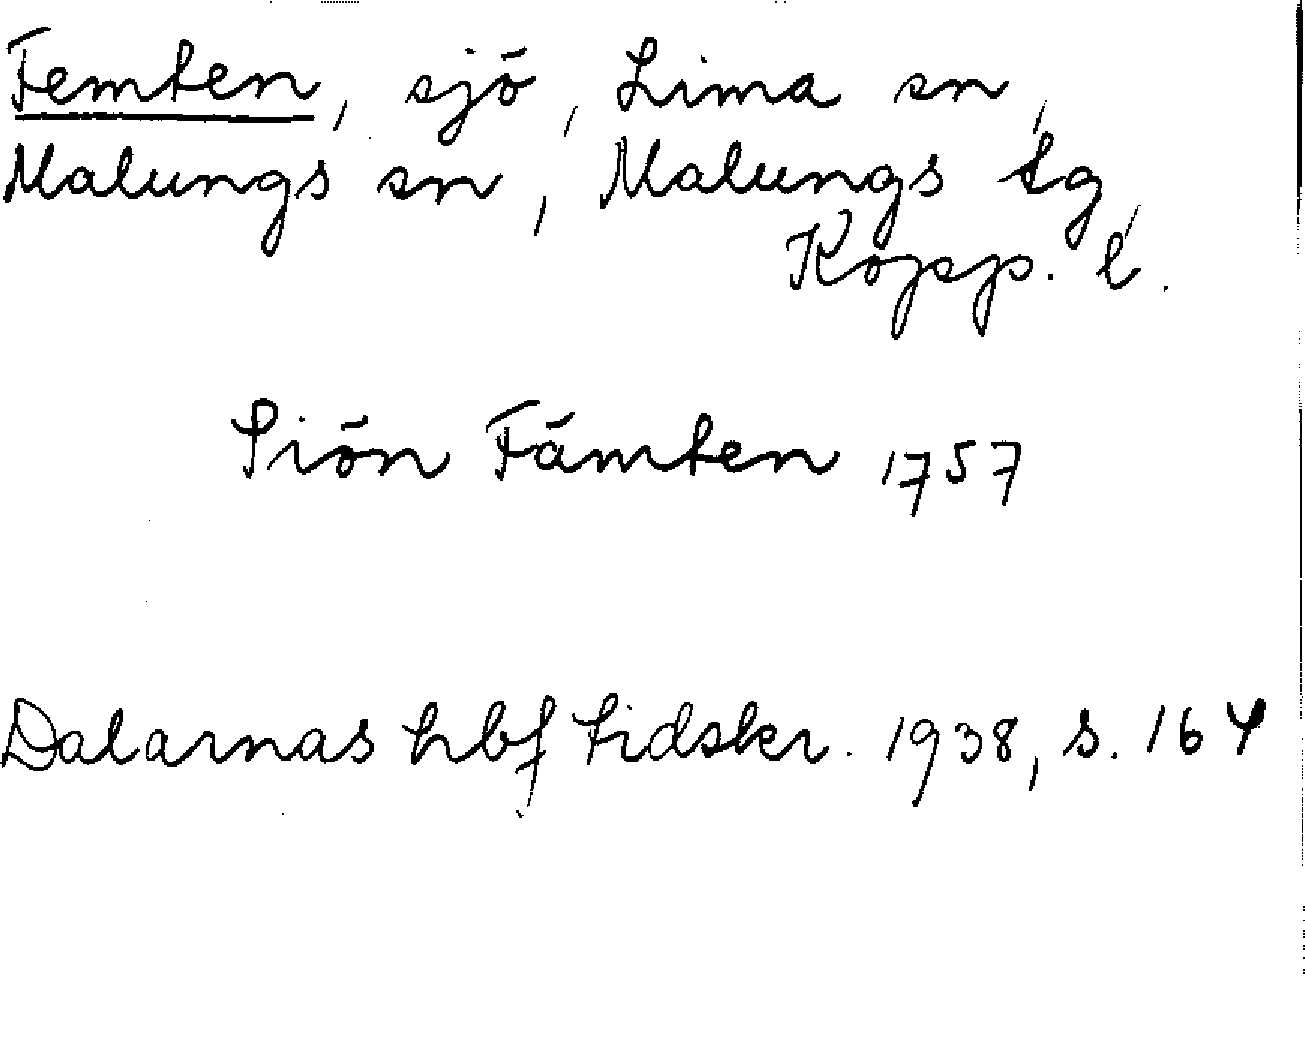 Femten, sjö, Lima sn,
Malungs sn, Malungs tg,
Kopp. l.
Siön Fämten 1757
Dalarnas hbf tidskr. 1938, s. 164